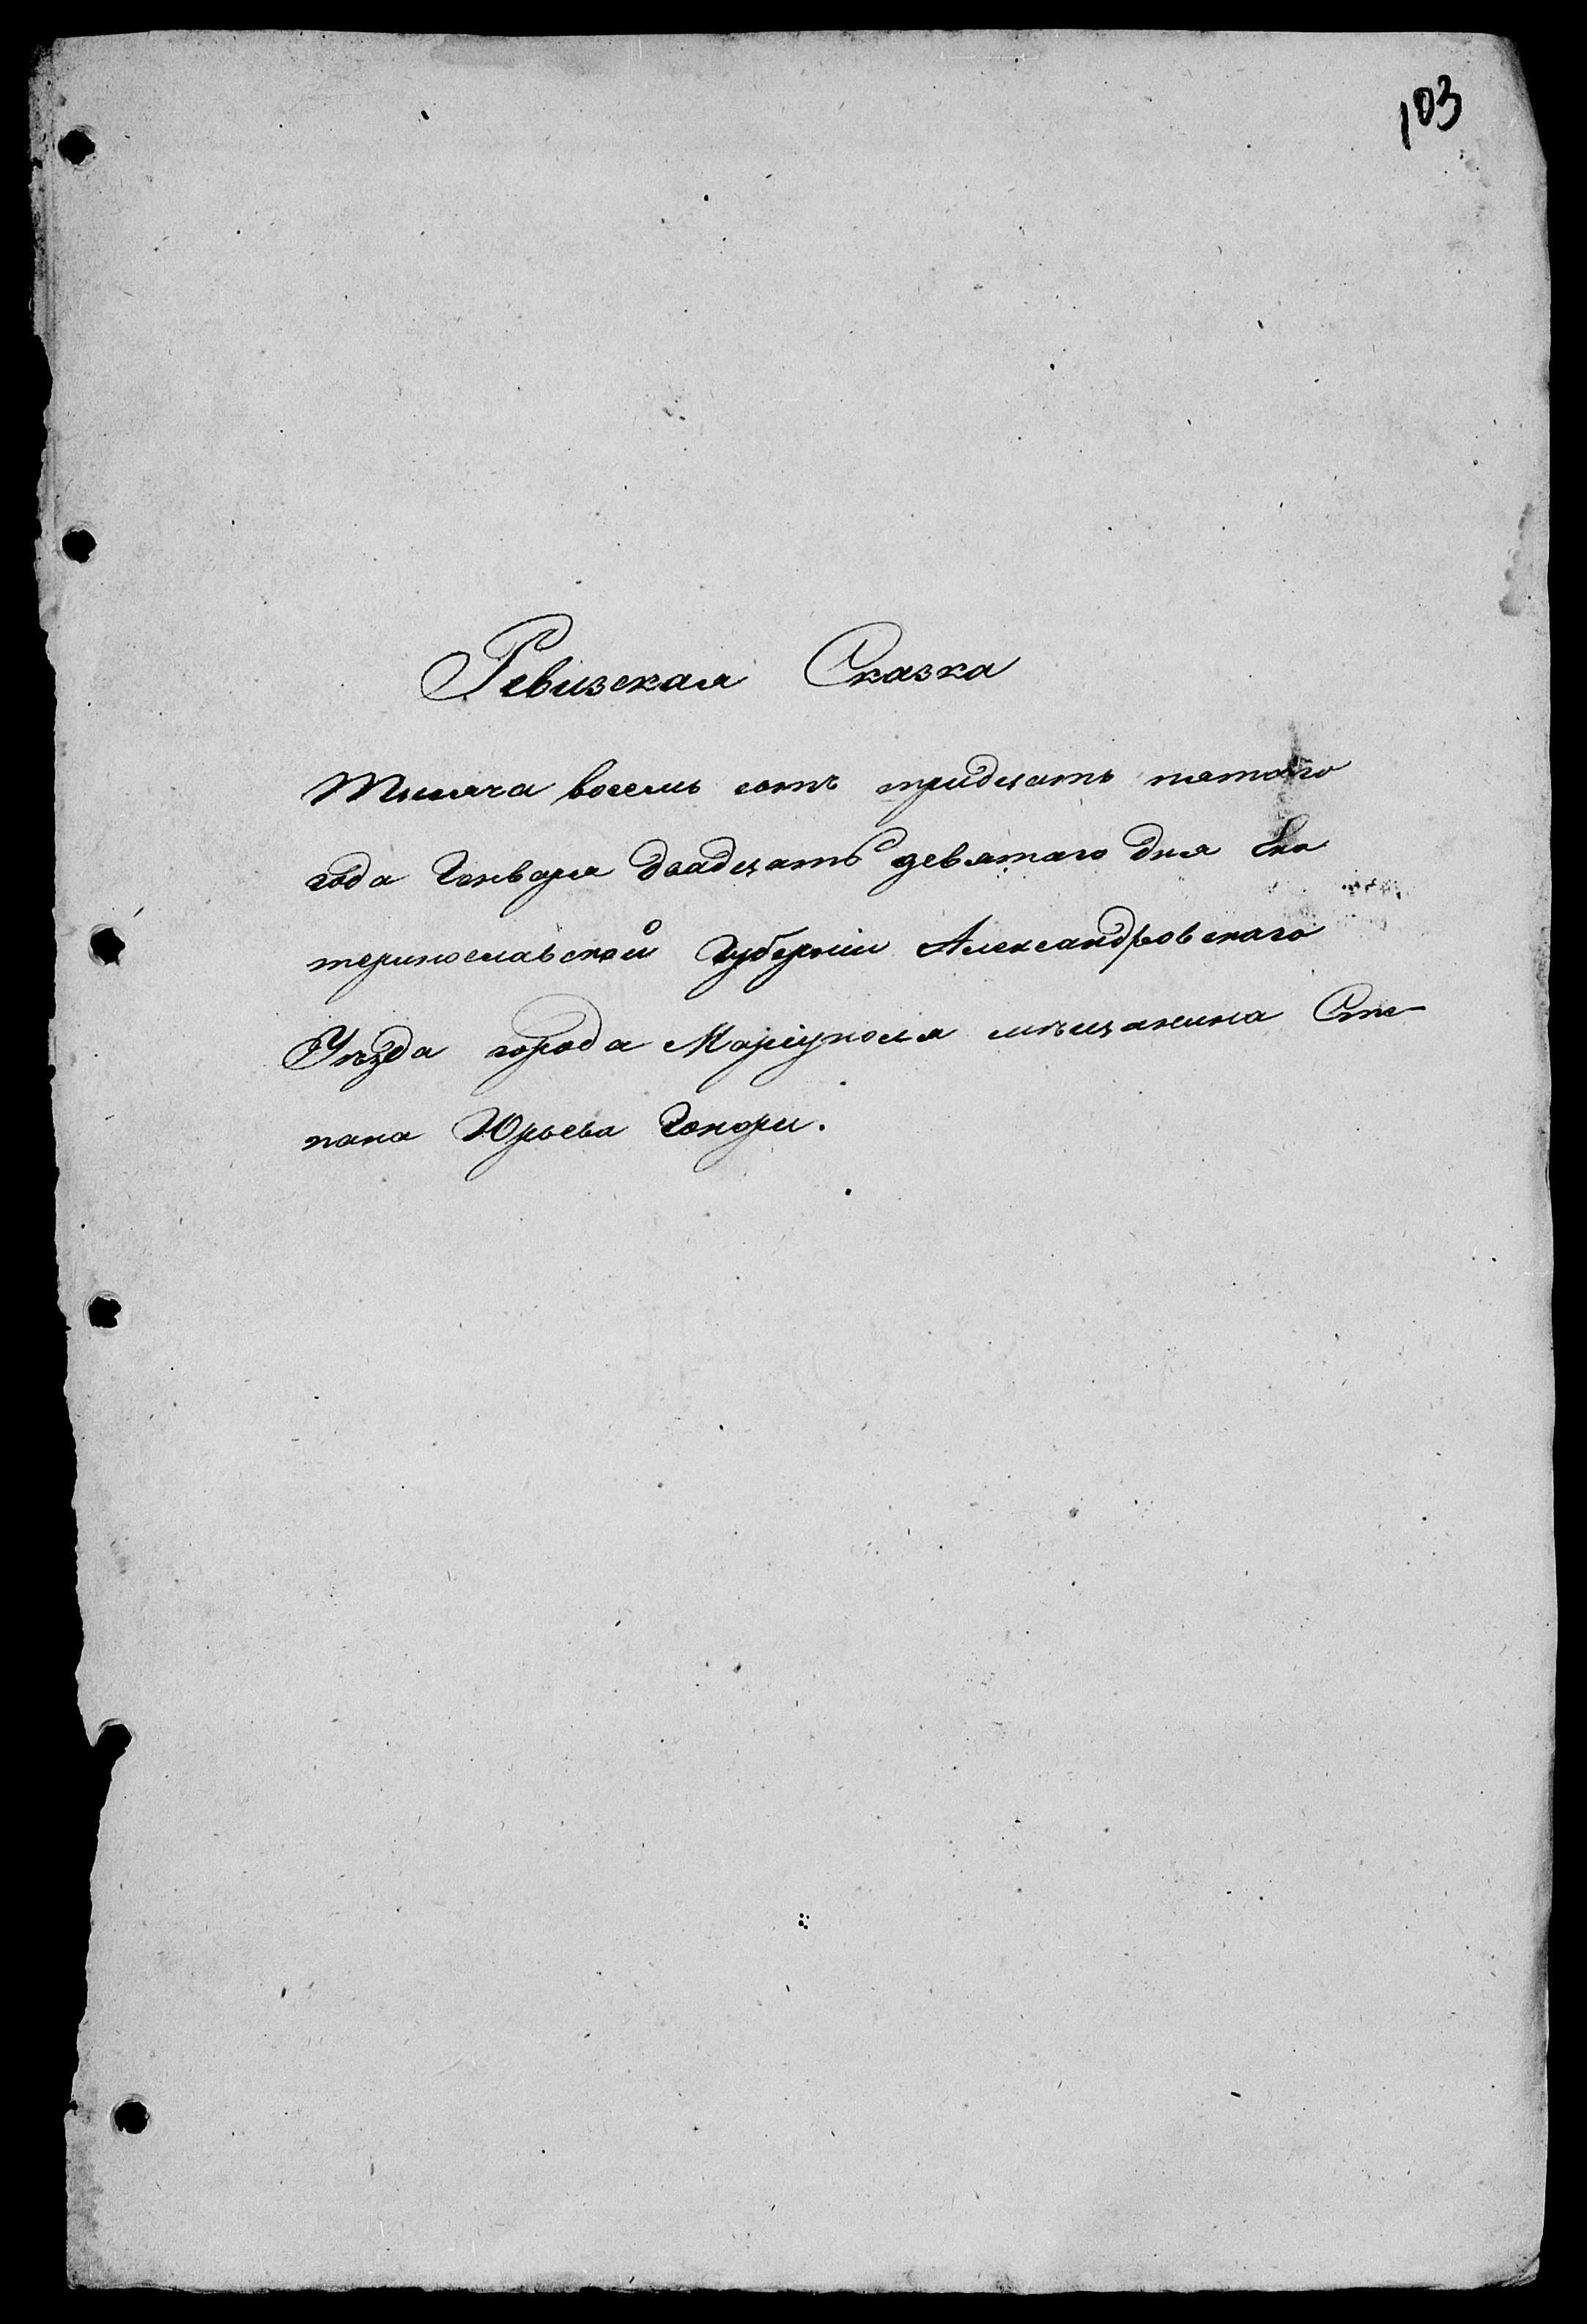 103
Ревизская Сказка
Тысяча восемь сотъ тридцать пятого
года Генваря двадцать девятаго дня Ека
теринославской Губернiи Александровскаго
Уѣзда города Марiуполя мѣщанина Сте-
пана Юрьева Гонори.